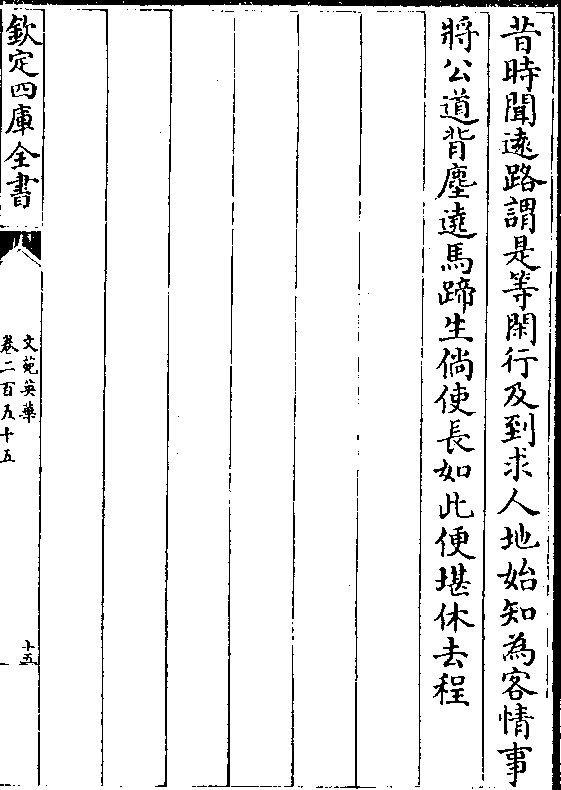 昔時聞遠路謂是等閑行及到求人地始知為客情事
將公道背塵遶馬蹄生倘使長如此便堪休去程
欽定四庫全書
文苑英華
卷二百五十五
十五